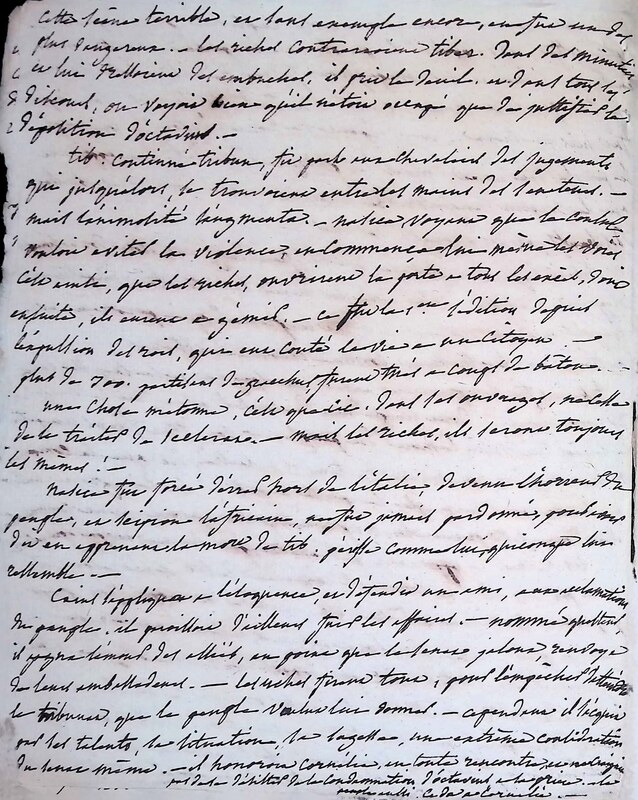 Cette scène terrible, et sans exemple encore, en fut un des
plus dangereux. — les riches contrarioient tiber. dans des minuties
et lui dresserent des embuches, il prit le deuil. et dans tous ses
discours, on voyoit bien qu'il n'étoit occupé que de justifier la
déposition d'octavius. —
tib. continua tribun, fit part aux chevaliers des jugements
qui jusqu'alors, se trouverent entre les mains des senateurs. —
mais l'animosité s'augmenta. — nasica voyant que le consul
vouloit eviter la violence, en commença lui même les voies
C'est ainsi, que les riches, ouvrirent la porte a tous les excès, dont
ensuite, ils eurent a gémir. — ce fut la 1ere sédition depuis
l'expulsion des rois, qui eut couté la vie a un citoyen. —
plus de 300. partisans de gracchus furent tués a coups de bâton. —
une chose m'étonne, c'est que cic. dans ses ouvrages, ne cesse
de le traiter de scelerat. — mais les riches, ils seront toujours
les mêmes ! —
nasica fut forcé d'errer hors de l'italie, devenu l'horreur du
peuple, et scipion l'africain, ne fut jamais pardonné, pour avoir
dit en apprenant la mort de tib : périsse comme lui, quiconque lui
ressemble. —
Caius s'appliqua a l'éloquence, et défendit un ami, aux acclamations
du peuple. il paroissoit d'ailleurs fuir les affaires. — nommé questeur
il gagna l'amour des alliés, au point que le senat jaloux, renvoya
de leurs ambassadeurs. — les riches firent tout, pour l'empêcher
le tribunat, que le peuple voulut lui donner. — cependant il acquit
par ses talents, sa situation, sa sagesse, une extrême considération
du senat même. — il honoroit cornelia, en toute rencontre, et
de se désister de la condamnation d'octavius a la prière
Cornelie. —